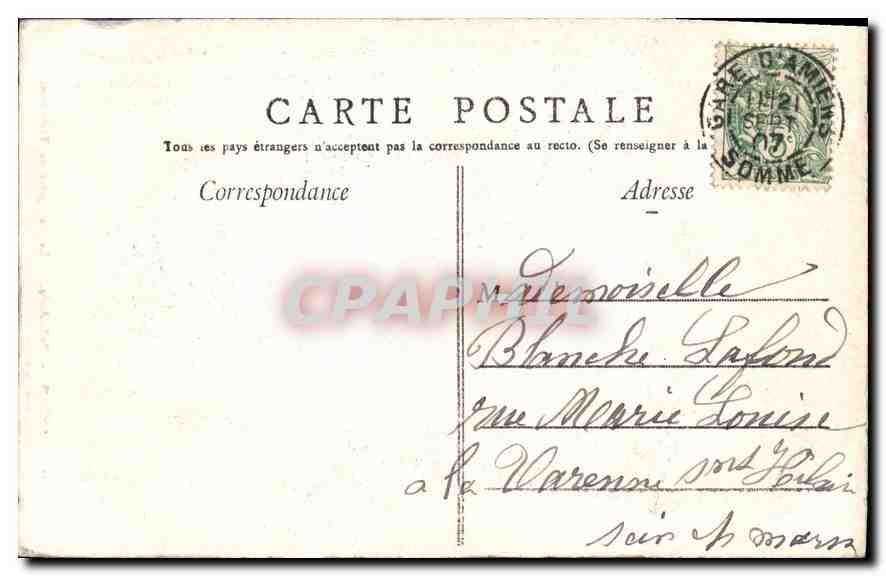 CARTE POSTALE
Tous les pays étrangers n'acceptent pas la correspondance au recto. (Se renseigner à la
Correspondance
Adresse
GARE D'AMIENS
21
SEPT
07
SOMME
Mademoiselle
Blanche Lafond
rue Marie Louise
a la Varenne snt Hilair
sein et marn
CPAPHIL